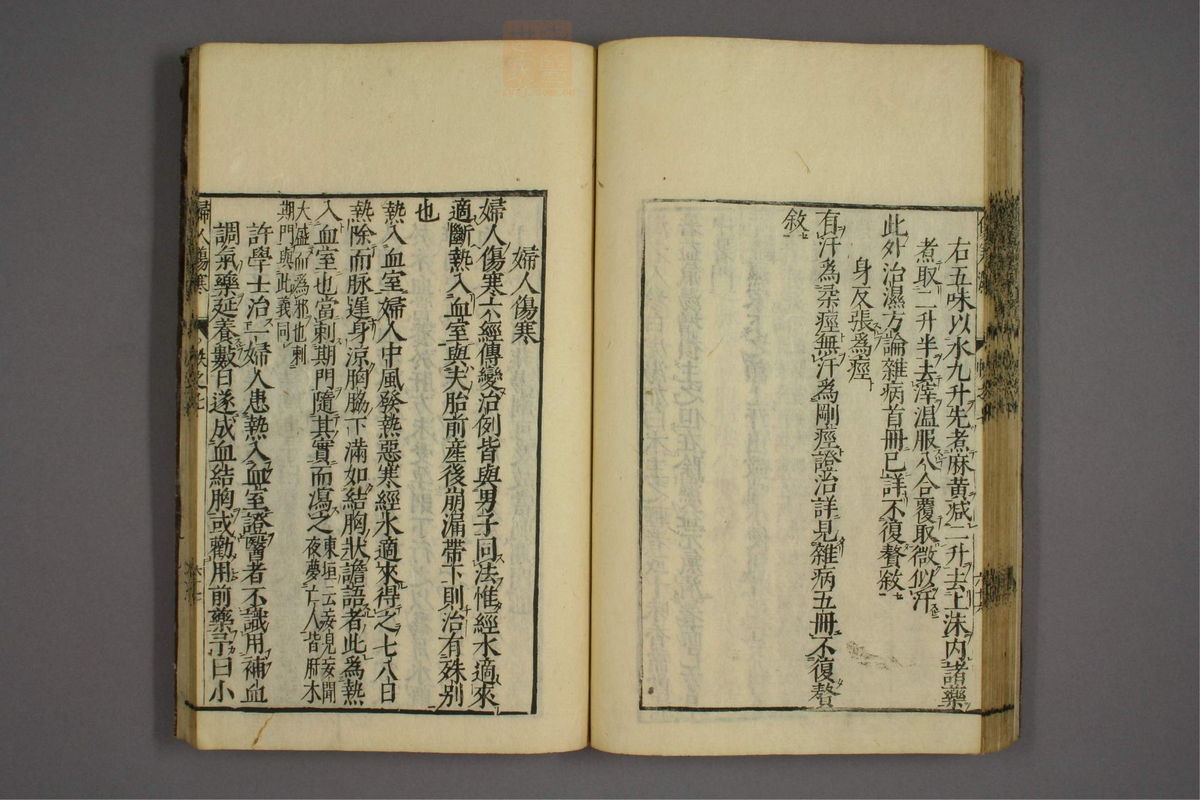 右五味以水九升先煮麻黄減二升去上沫内諸藥
煮取二升半去滓温服八合覆取微似汗
此外治濕方論雜病首冊已詳不復贅敘
身反張爲痙
有汗爲柔痙無汗爲剛痙證治詳見雜病五冊不復贅
敘
婦人傷寒
婦人傷寒六經傳變治例皆與男子同法惟經水適來
適斷熱入血室與夫胎前産後崩漏帶下則治有殊別
也
熱入血室婦人中風發熱惡寒經水適來得之七八日
熱除而脉遲身涼胸脇下滿如結胸狀譫語者此爲熱
入血室也當刺期門隨其實而瀉之
東垣云妄見妄聞
夜夢亡人皆肝木
大盛而爲邪也刺
期門與此義同
許學士治一婦人患熱入血室證醫者不識用補血
調氣藥延養數日遂成血結胸或勸用前藥予曰小
婦人傷寒